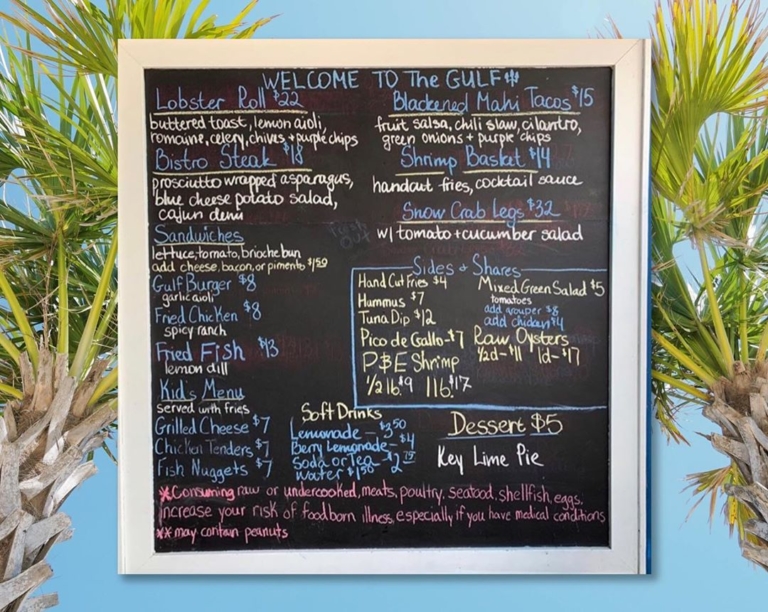 WELCOME TO The GULF
Lobster Roll $22
buttered toast, lemon aioli,
romaine, celery, chives + purple chips
Bistro Steak $18
prosciutto wrapped asparagus,
blue cheese potato salad,
cajun demi
Sandwiches
lettuce, tomato, brioche bun
add cheese, bacon, or pimento $1.50
Gulf Burger $8
garlic aioli
Fried Chicken $8
spicy ranch
Fried Fish $13
lemon dill
Kid's Menu
served with fries
Grilled Cheese $7
Chicken Tenders $7
Fish Nuggets $7
Soft Drinks
Lemonade - $3.50
Berry Lemonade - $4
Soda or Tea - $2.75
Water $1.50
Blackened Mahi Tacos $15
fruit salsa, chili slaw, cilantro,
green onions + purple chips
Shrimp Basket $14
handcut fries, cocktail sauce
Snow Crab Legs $32
w/ tomato + cucumber salad
Sides + Shares
Hand Cut Fries $4
Hummus $7
Tuna Dip $12
Pico de Gallo - $7
P&E Shrimp
1/2 lb $9 1 lb $17
Mixed Green Salad $5
tomatoes
add grouper $8
add chicken $4
Raw Oysters
1/2 d - $11 1d - $17
Dessert $5
Key Lime Pie
*Consuming raw or undercooked, meats, poultry, seafood, shellfish, eggs,
increase your risk of foodborn illness, especially if you have medical conditions
** may contain peanuts